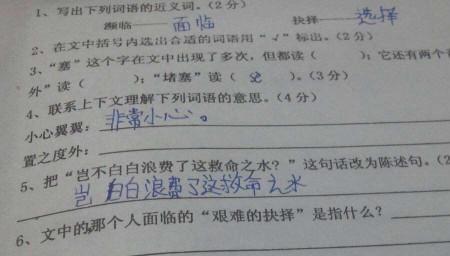 1、写出下列词语的近义词。(2分)
濒临—— 面临 抉择—— 选择
2、在文中括号内选出合适的词语用“√”标出。(2分)
3、“塞”这个字在文中出现了多次,但都读( );它还有两个
外”读( );“堵塞”读( )。(3分)
4、联系上下文理解下列词语的意思。(4分)
小心翼翼:非常小心。
置之度外:
5、把“岂不白白浪费了这救命之水?”这句话改为陈述句。(2
岂 白白浪费了这救命之水
6、文中的那个人面临的“艰难的抉择”是指什么?